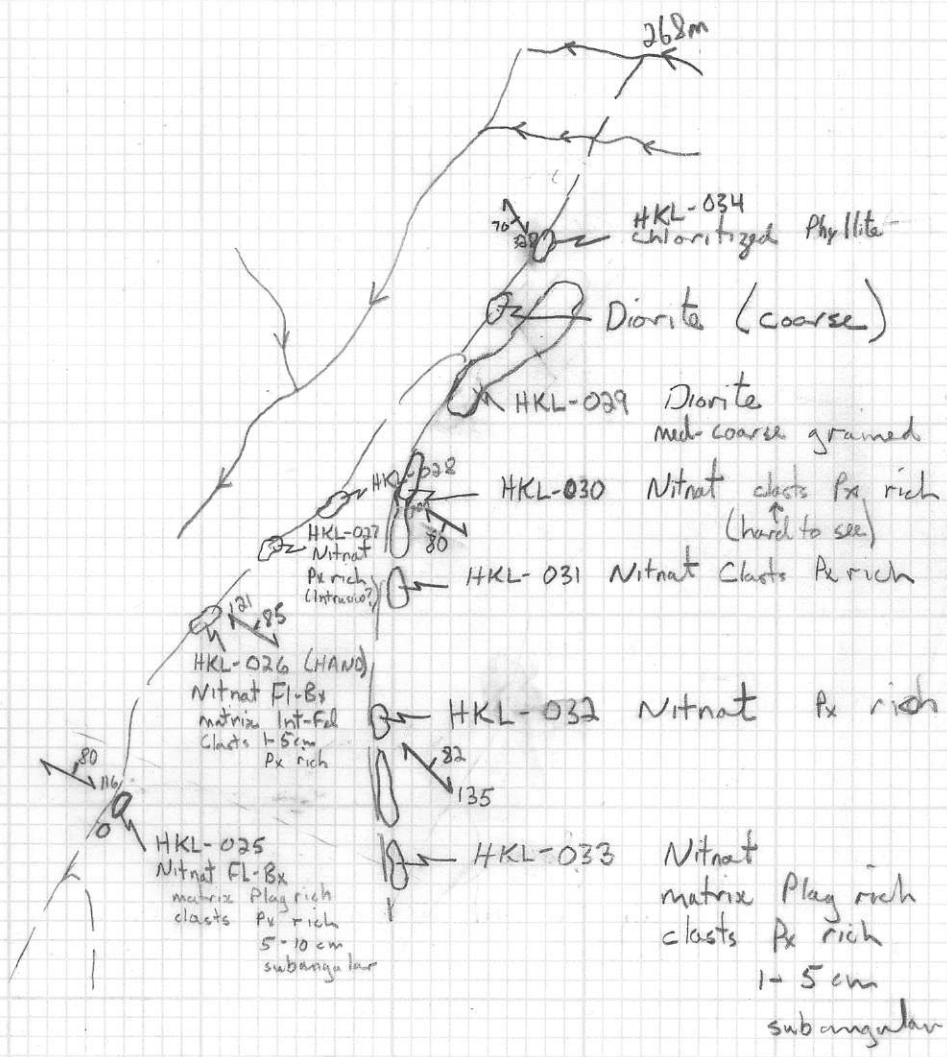 268m
HKL-034
70
328
chloritized Phyllite
Diorite (coarse)
HKL-029 Diorite
med-coarse grained
HKL-028
HKL-030 Nitnat clasts Px rich
(hard to see)
80
HKL-027
Nitnat
Px rich
(Intrusio?)
HKL-031 Nitnat Clasts Px rich
121 85
HKL-026 (HAND)
Nitnat Fl-Bx
matrix Int-Fel
Clasts 1-5cm
Px rich
HKL-032 Nitnat Px rich
82
135
80
116
HKL-025
Nitnat FL-Bx
matrix Plag rich
clasts Px rich
5-10 cm
subangular
HKL-033 Nitnat
matrix Plag rich
clasts Px rich
1-5 cm
subangular